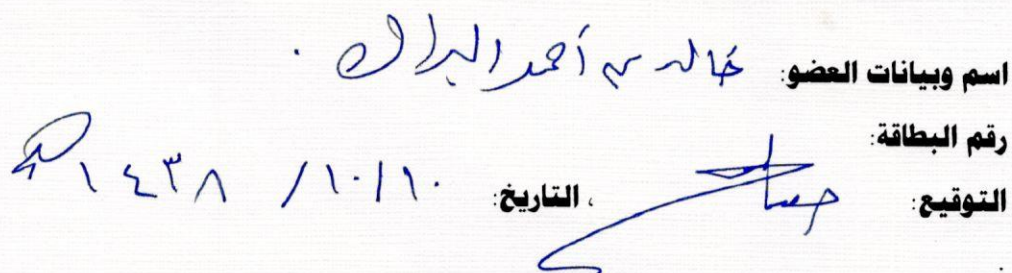 اسم وبيانات العضو: خالد بن أحمد البراك.
رقم البطاقة:
التوقيع: ، التاريخ: ١٠/١٠/ ١٤٣٨ هـ